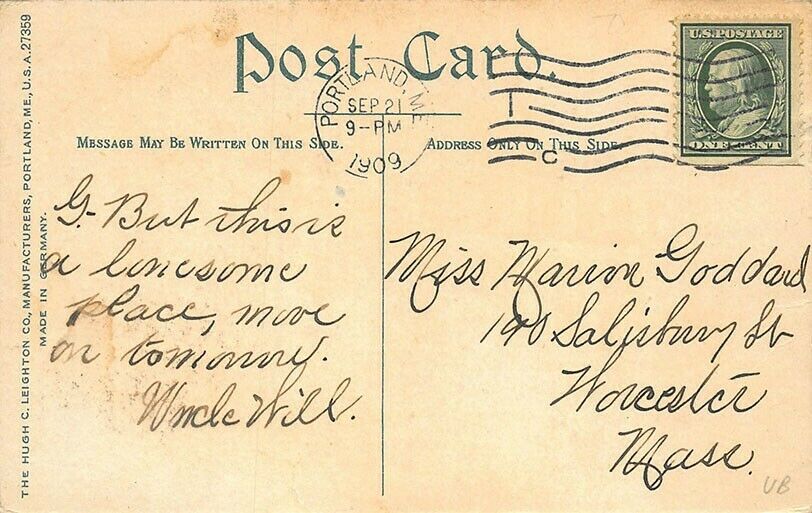 Post Card.
U.S. POSTAGE
ONE CENT
PORTLAND, ME.
SEP 21
9-PM
1909
C
MESSAGE MAY BE WRITTEN ON THIS SIDE.
ADDRESS ONLY ON THIS SIDE.
G. But this is
a lonesome
place, move
on tomorrow.
Uncle Will.
Miss Marion Goddard
190 Salisbury St
Worcester
Mass.
THE HUGH C. LEIGHTON CO., MANUFACTURERS, PORTLAND, ME., U.S.A. 27359
MADE IN GERMANY.
UB